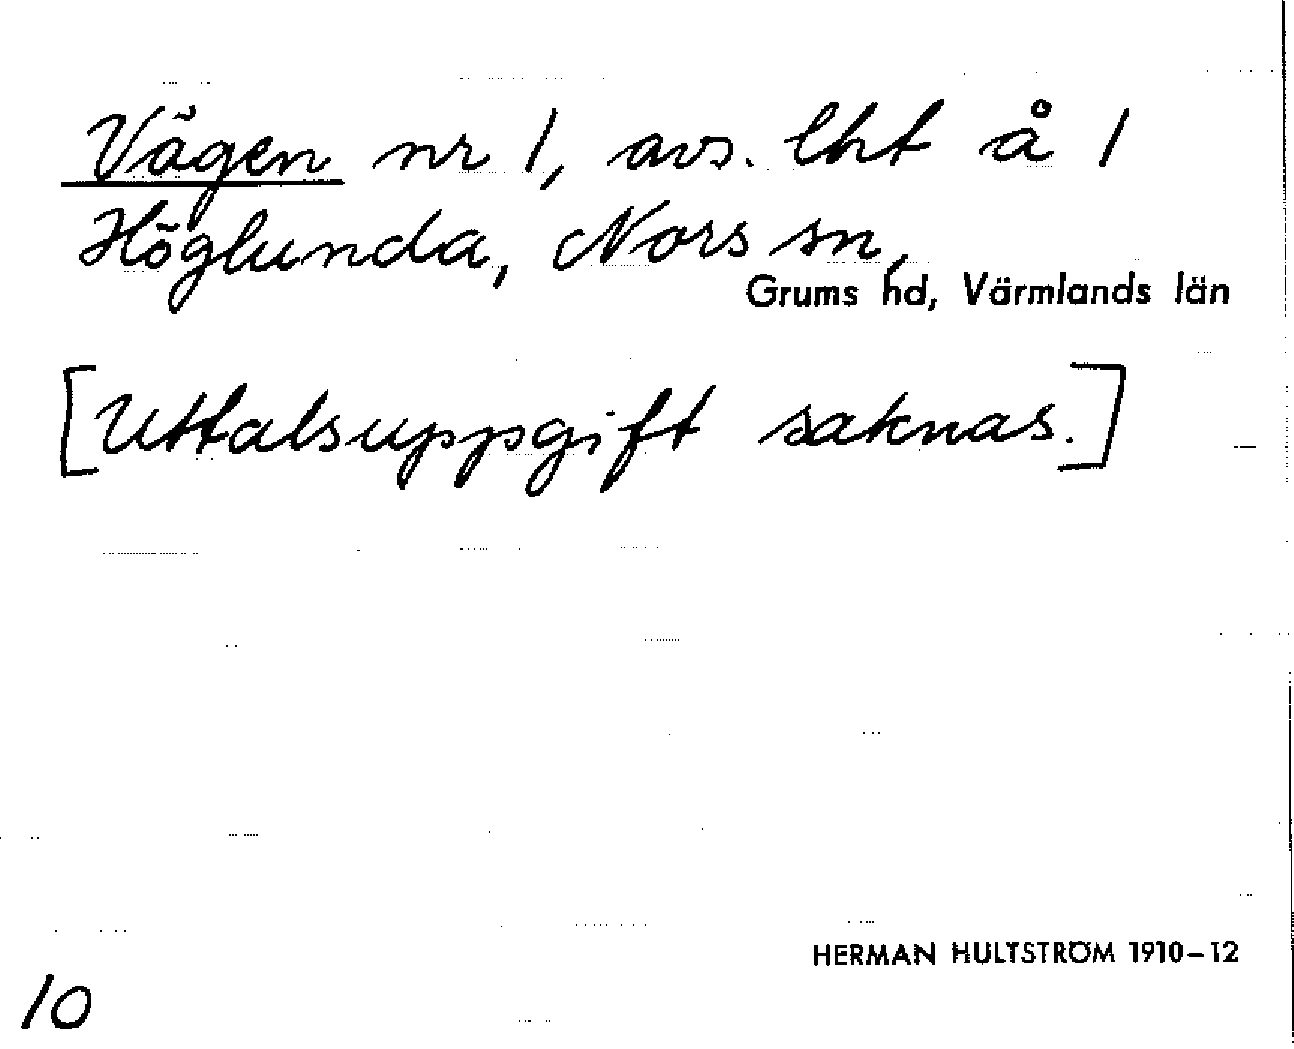 Vägen nr 1, avs. lht å 1
Höglunda, Nors sn,
Grums hd, Värmlands län
[Uttalsuppgift saknas.]
HERMAN HULTSTRÖM 1910-12
10